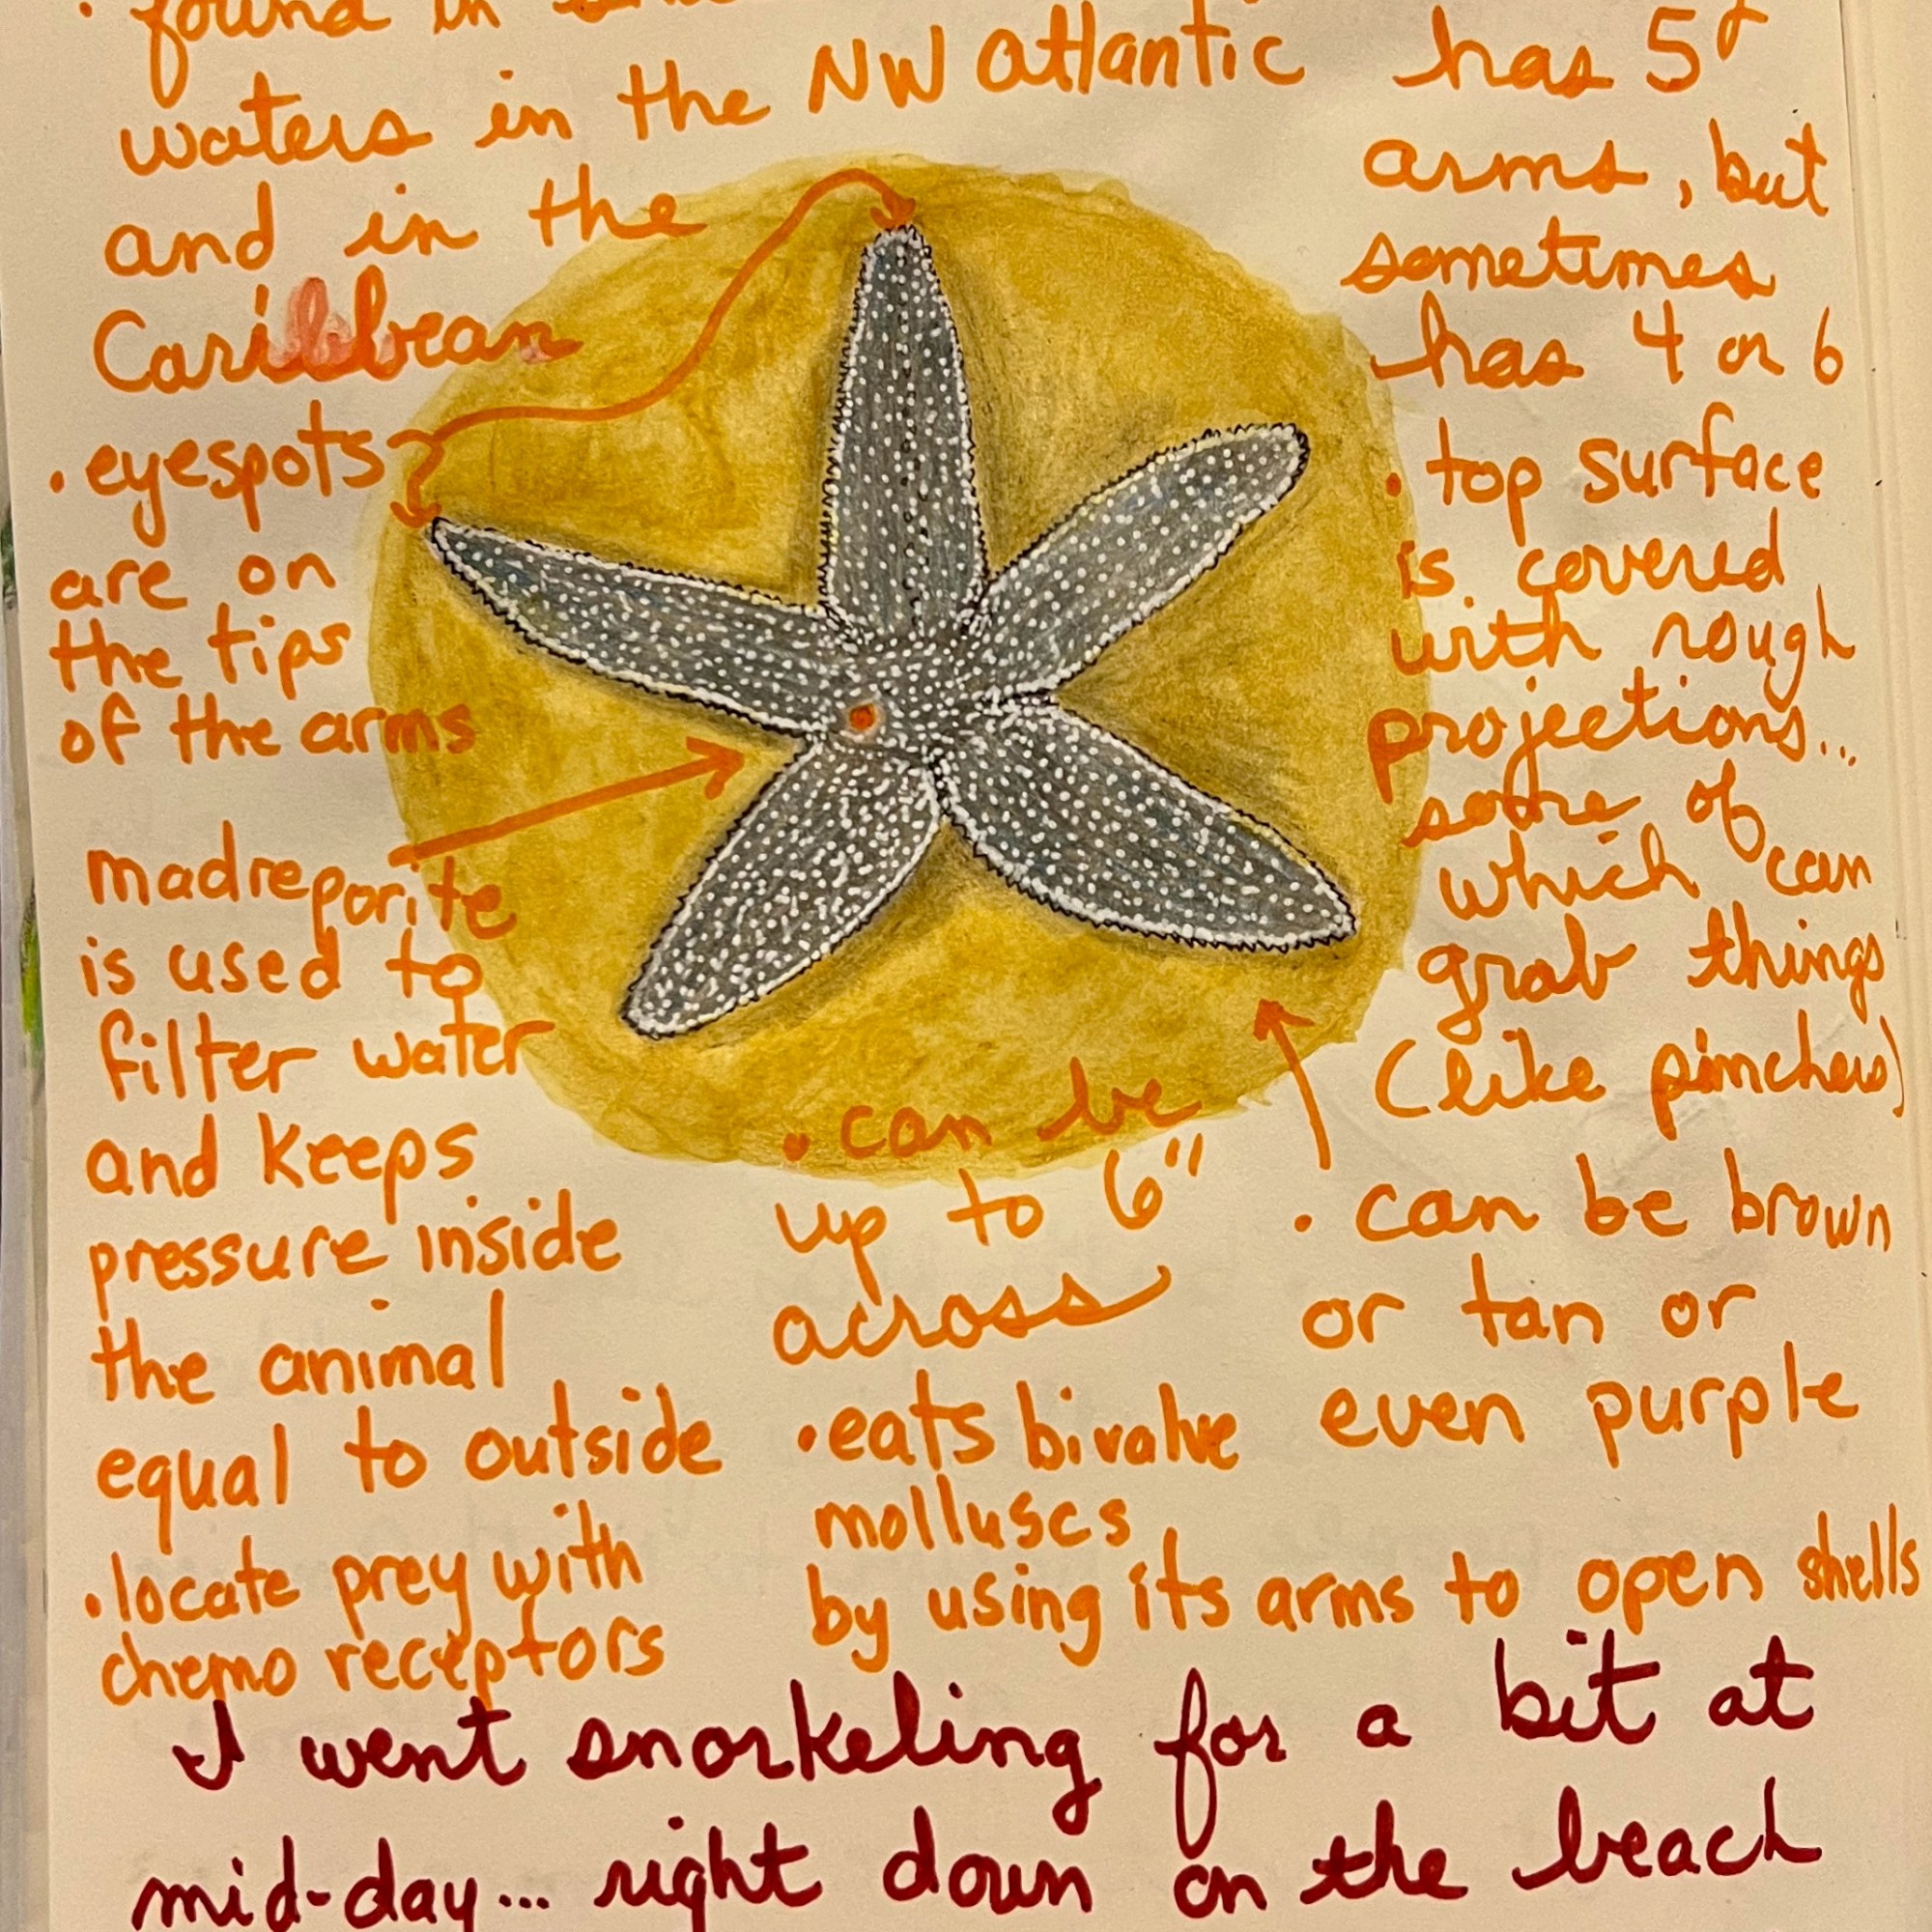 · found in
waters in the NW atlantic
and in the
Caribbean
· eyespots
are on
the tips
of the arms
madreporite
is used to
filter water
and keeps
pressure inside
the animal
equal to outside
· locate prey with
chemo receptors
has 5
arms, but
sometimes
has 4 or 6
· top surface
is covered
with rough
projections...
some of
which can
grab things
(like pinchers)
· can be brown
or tan or
even purple
· can be
up to 6"
across
· eats bivalve
molluscs
by using its arms to open shells
I went snorkeling for a bit at
mid-day... right down on the beach